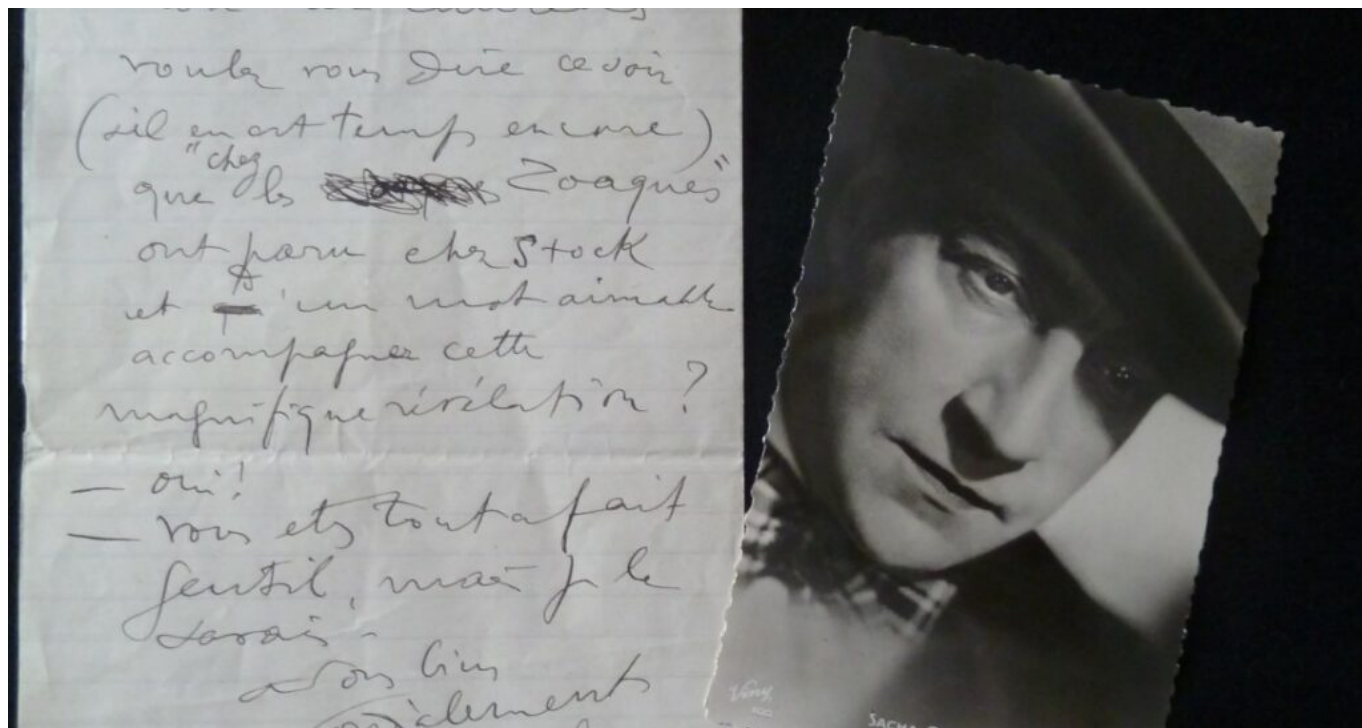 voulez vous dire ce soir
(s'il en est temps encore)
que "chez les Zoaques"
ont paru chez Stock
et qu'un mot aimable
accompagnez cette
magnifique révélation ?
— oui !
— vous etes tout a fait
gentil, mais je le
savais -
Viny
SACHA